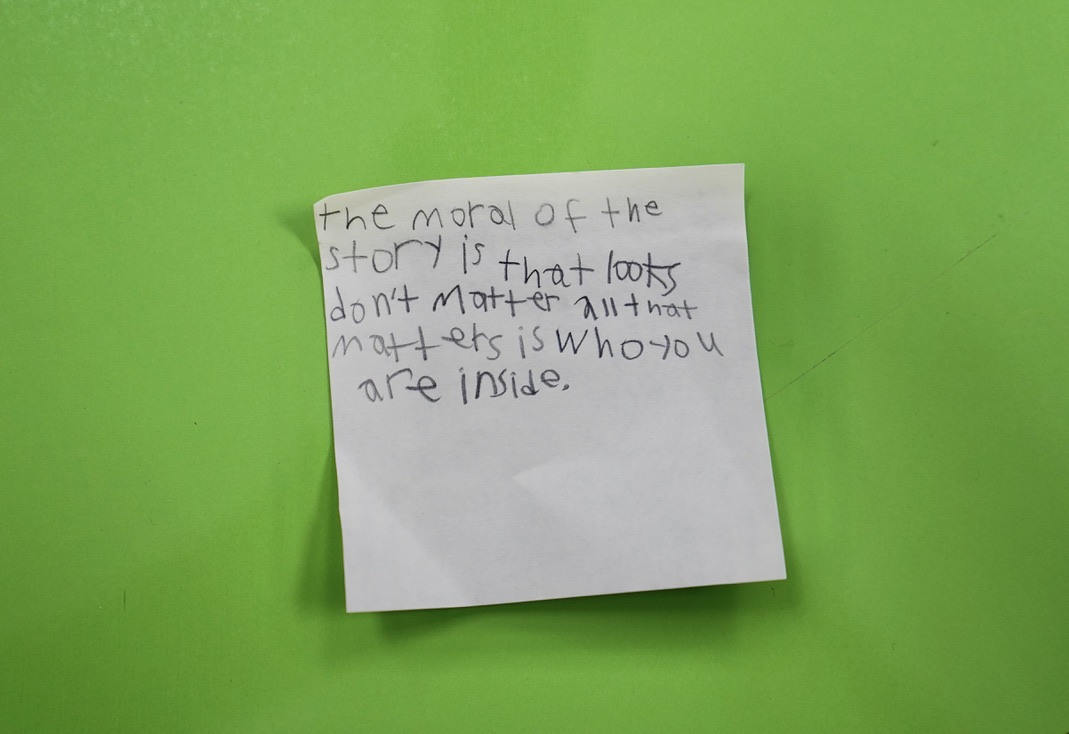 the moral of the
story is that looks
don't matter all that
matters is who you
are inside.